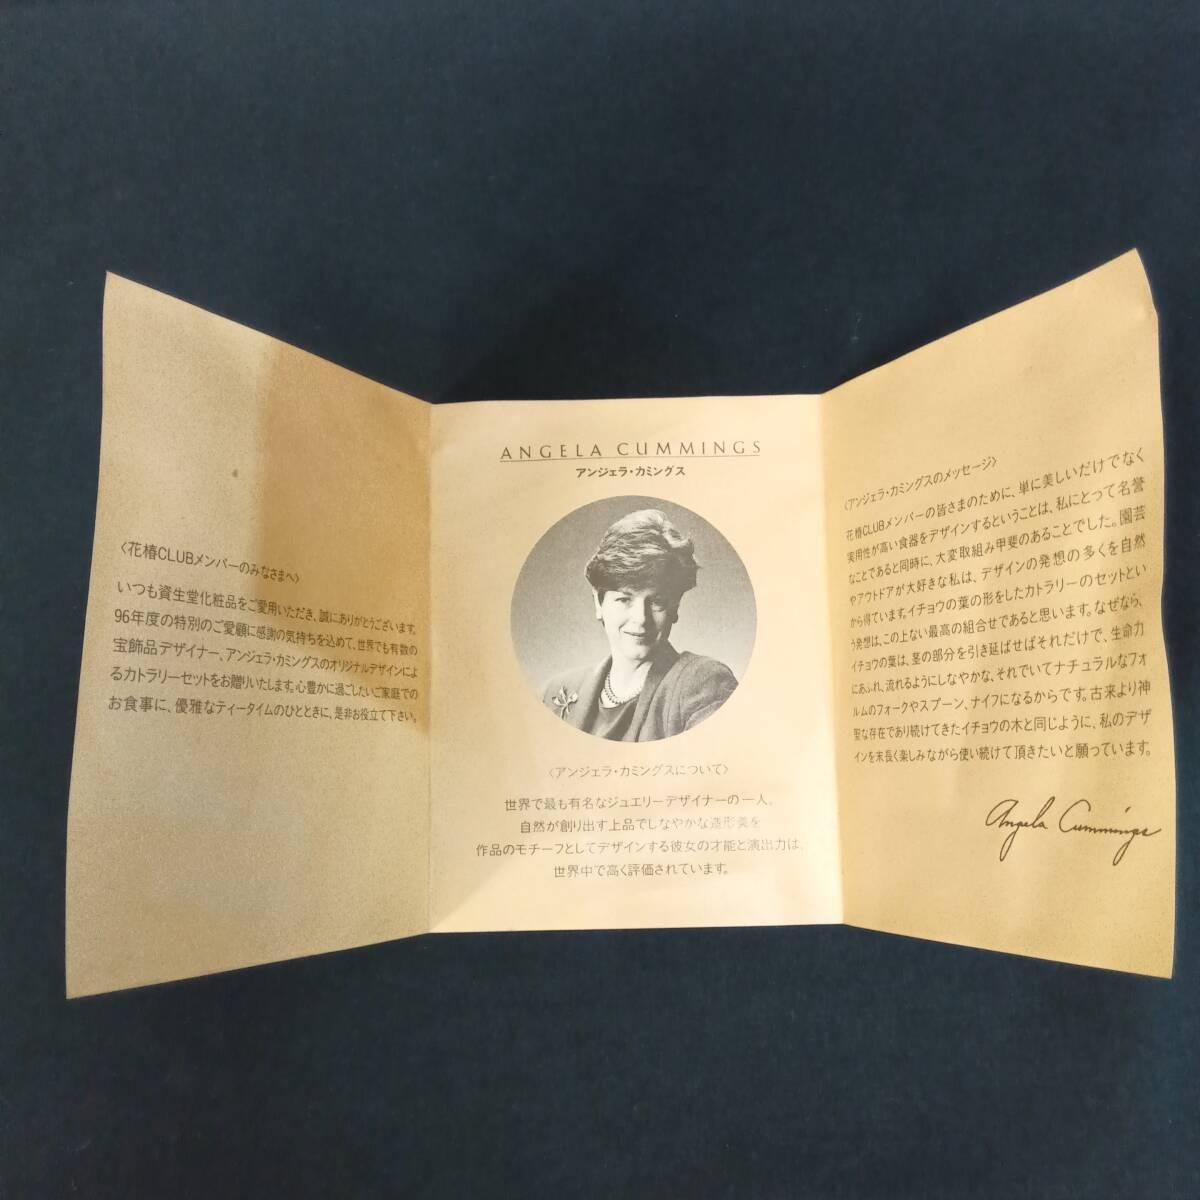 〈花椿CLUBメンバーのみなさまへ〉
いつも資生堂化粧品をご愛用いただき、誠にありがとうございます。
96年度の特別のご愛顧に感謝の気持ちを込めて、世界でも有数の
宝飾品デザイナー、アンジェラ・カミングスのオリジナルデザインによ
るカトラリーセットをお贈りいたします。心豊かに過ごしたいご家庭での
お食事に、優雅なティータイムのひとときに、是非お役立て下さい。
ANGELA CUMMINGS
アンジェラ・カミングス
〈アンジェラ・カミングスについて〉
世界で最も有名なジュエリーデザイナーの一人。
自然が創り出す上品でしなやかな造形美を
作品のモチーフとしてデザインする彼女の才能と演出力は、
世界中で高く評価されています。
〈アンジェラ・カミングスのメッセージ〉
花椿CLUBメンバーの皆さまのために、単に美しいだけでなく
実用性が高い食器をデザインするということは、私にとって名誉
なことであると同時に、大変取組み甲斐のあることでした。園芸
やアウトドアが大好きな私は、デザインの発想の多くを自然
から得ています。イチョウの葉の形をしたカトラリーのセットとい
う発想は、この上ない最高の組合せであると思います。なぜなら、
イチョウの葉は、茎の部分を引き延ばせばそれだけで、生命力
にあふれ、流れるようにしなやかな、それでいてナチュラルなフォ
ルムのフォークやスプーン、ナイフになるからです。古来より神
聖な存在であり続けてきたイチョウの木と同じように、私のデザ
インを末長く楽しみながら使い続けて頂きたいと願っています。
Angela Cummings